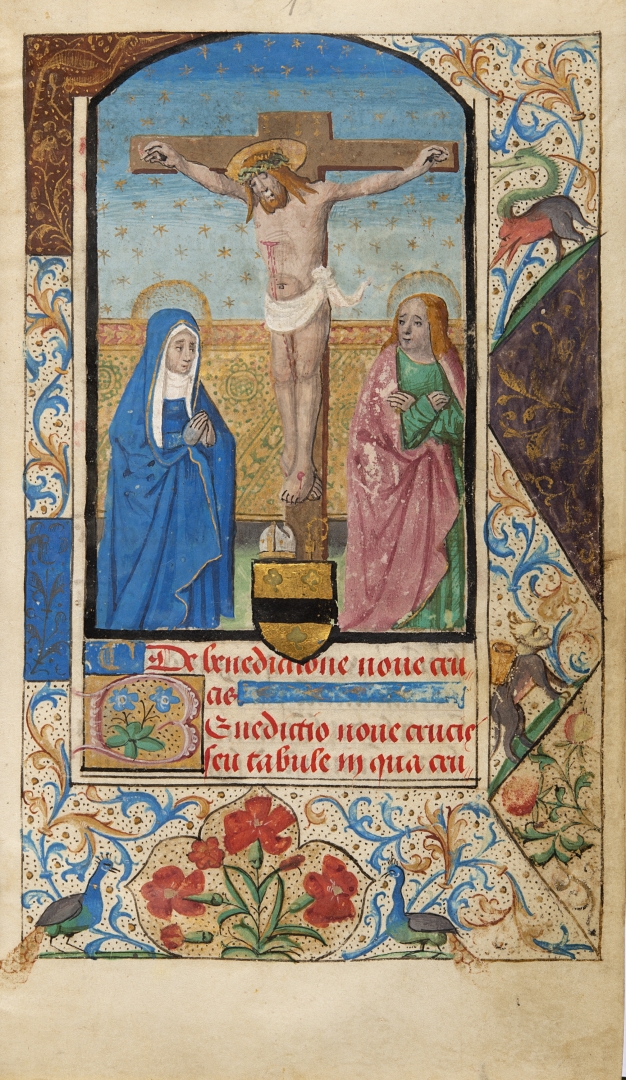 1
De benedictione noue cru
cis
Benedictio noue crucis
seu tabule in qua cru